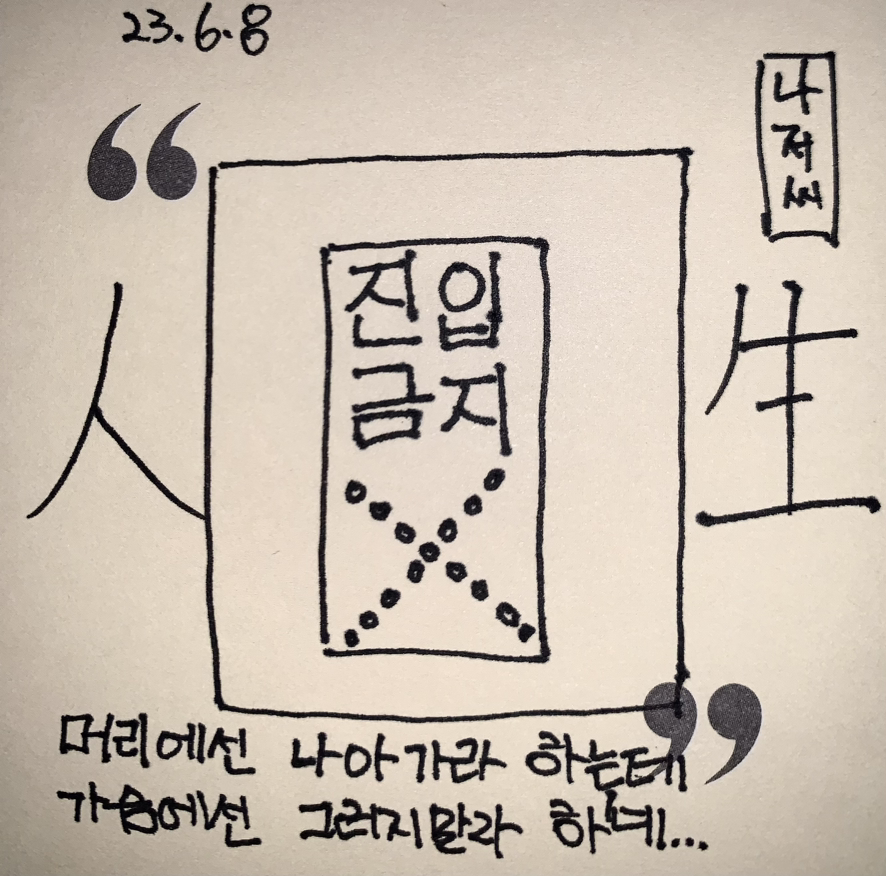 23.6.8
나저씨
人 生
진입
금지
머리에선 나아가라 하는데
가음에선 그러지말라 하네...